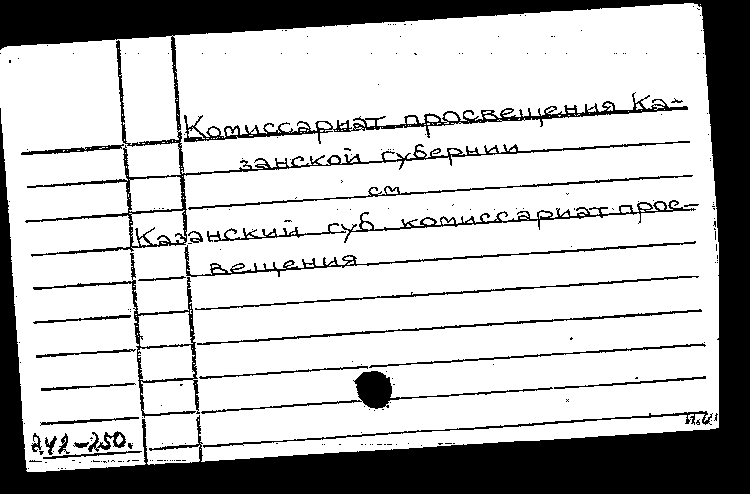 Комиссариат просвещения Ка-
занской губернии
см.
Казанский губ. комиссариат прос-
вещения
242-250.